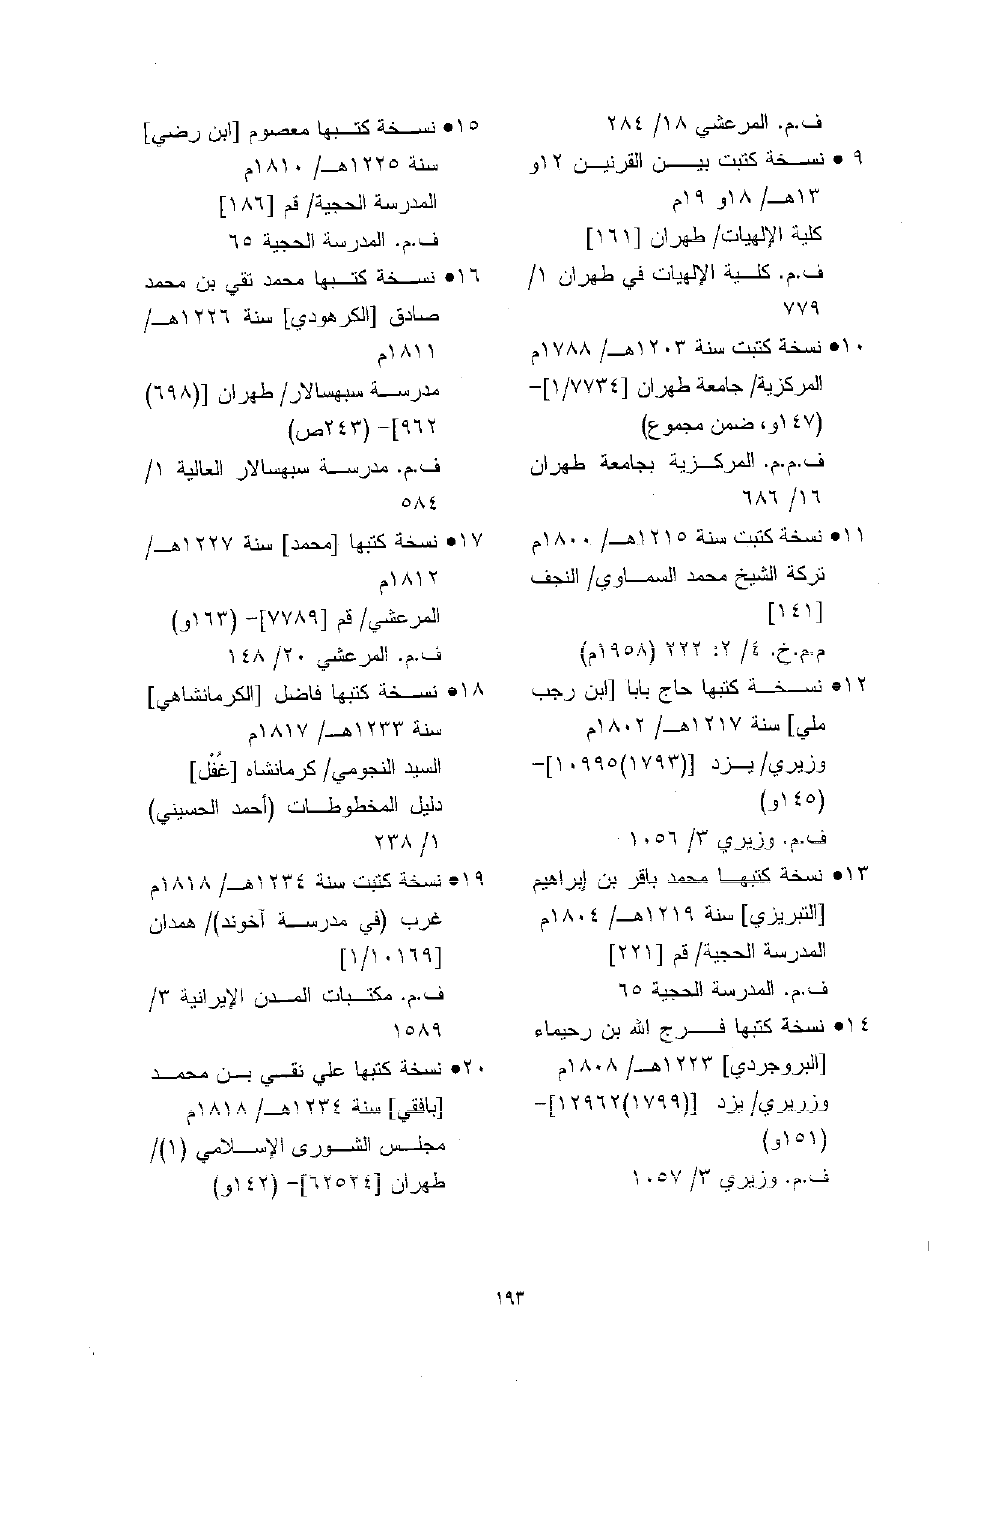 ف.م. المرعشي ١٨/ ٢٨٤
٩ • نسخة كتبت بين القرنين ١٢و
١٣هـ/ ١٨و ١٩م
كلية الإلهيات/ طهران [١٦١]
ف.م. كلية الإلهيات في طهران ١/
٧٧٩
١٠• نسخة كتبت سنة ١٢٠٣هـ/ ١٧٨٨م
المركزية/ جامعة طهران [١/٧٧٣٤]-
(١٤٧و، ضمن مجموع)
ف.م.م. المركزية بجامعة طهران
١٦/ ٦٨٦
١١• نسخة كتبت سنة ١٢١٥هـ/ ١٨٠٠م
تركة الشيخ محمد السماوي/ النجف
[١٤١]
م.م.خ. ٤/ ٢: ٢٢٢ (١٩٥٨م)
١٢• نسخة كتبها حاج بابا [ابن رجب
ملي] سنة ١٢١٧هـ/ ١٨٠٢م
وزيري/ يزد [(١٧٩٣)١٠٩٩٥]-
(١٤٥و)
ف.م. وزيري ٣/ ١٠٥٦
١٣• نسخة كتبها محمد باقر بن إبراهيم
[التبريزي] سنة ١٢١٩هـ/ ١٨٠٤م
المدرسة الحجية/ قم [٢٢١]
ف.م. المدرسة الحجية ٦٥
١٤• نسخة كتبها فرج الله بن رحيماء
[البروجردي] ١٢٢٣هـ/ ١٨٠٨م
وزريري/ يزد [(١٧٩٩)١٢٩٦٢]-
(١٥١و)
ف.م. وزيري ٣/ ١٠٥٧
١٥• نسخة كتبها معصوم [ابن رضي]
سنة ١٢٢٥هـ/ ١٨١٠م
المدرسة الحجية/ قم [١٨٦]
ف.م. المدرسة الحجية ٦٥
١٦• نسخة كتبها محمد تقي بن محمد
صادق [الكرهودي] سنة ١٢٢٦هـ/
١٨١١م
مدرسة سبهسالار/ طهران [(٦٩٨)
٩٦٢]- (٢٤٣ص)
ف.م. مدرسة سبهسالار العالية ١/
٥٨٤
١٧• نسخة كتبها [محمد] سنة ١٢٢٧هـ/
١٨١٢م
المرعشي/ قم [٧٧٨٩]- (١٦٣و)
ف.م. المرعشي ٢٠/ ١٤٨
١٨• نسخة كتبها فاضل [الكرمانشاهي]
سنة ١٢٣٣هـ/ ١٨١٧م
السيد النجومي/ كرمانشاه [غُفْل]
دليل المخطوطات (أحمد الحسيني)
١/ ٢٣٨
١٩• نسخة كتبت سنة ١٢٣٤هـ/ ١٨١٨م
غرب (في مدرسة آخوند)/ همدان
[١/١٠١٦٩]
ف.م. مكتبات المدن الإيرانية ٣/
١٥٨٩
٢٠• نسخة كتبها علي نقي بن محمد
[بافقي] سنة ١٢٣٤هـ/ ١٨١٨م
مجلس الشورى الإسلامي (١)/
طهران [٦٢٥٢٤]- (١٤٢و)
١٩٣